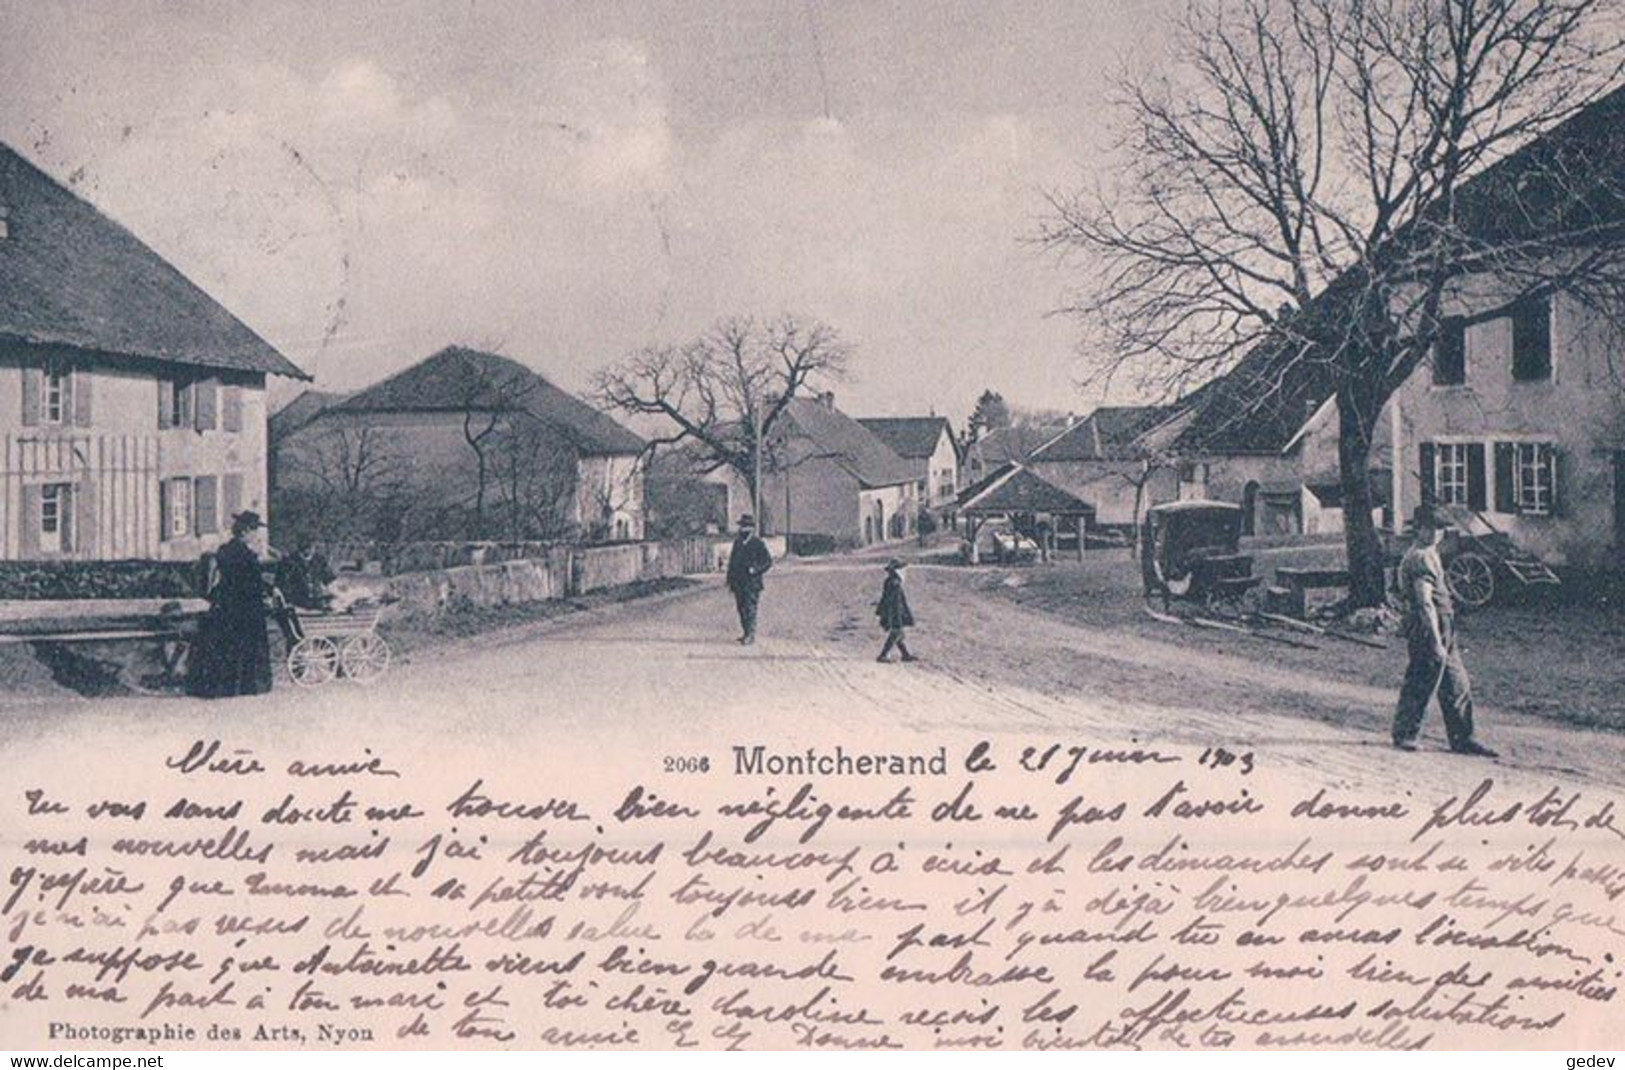 2066 Montcherand le 21 Juin 1903
chère amie
Tu vas sans doute me trouver bien négligente de ne pas t'avoir donné plus tôt de
mes nouvelles mais j'ai toujours beaucoup à écrire et les dimanches sont si vite passés
J'espère que Emma et sa petite vont toujours bien il y a déjà bien quelques temps que
je n'ai pas reçus de nouvelles salue la de ma part quand tu en auras l'occasion.
Je suppose que Antoinette vient bien grande embrasse la pour moi bien des amitiés
de ma part à ton mari et toi chère Caroline reçois les affectueuses salutations
Photographie des Arts, Nyon de ton amie Donne moi bientôt de tes nouvelles
gedev
www.delcampe.net